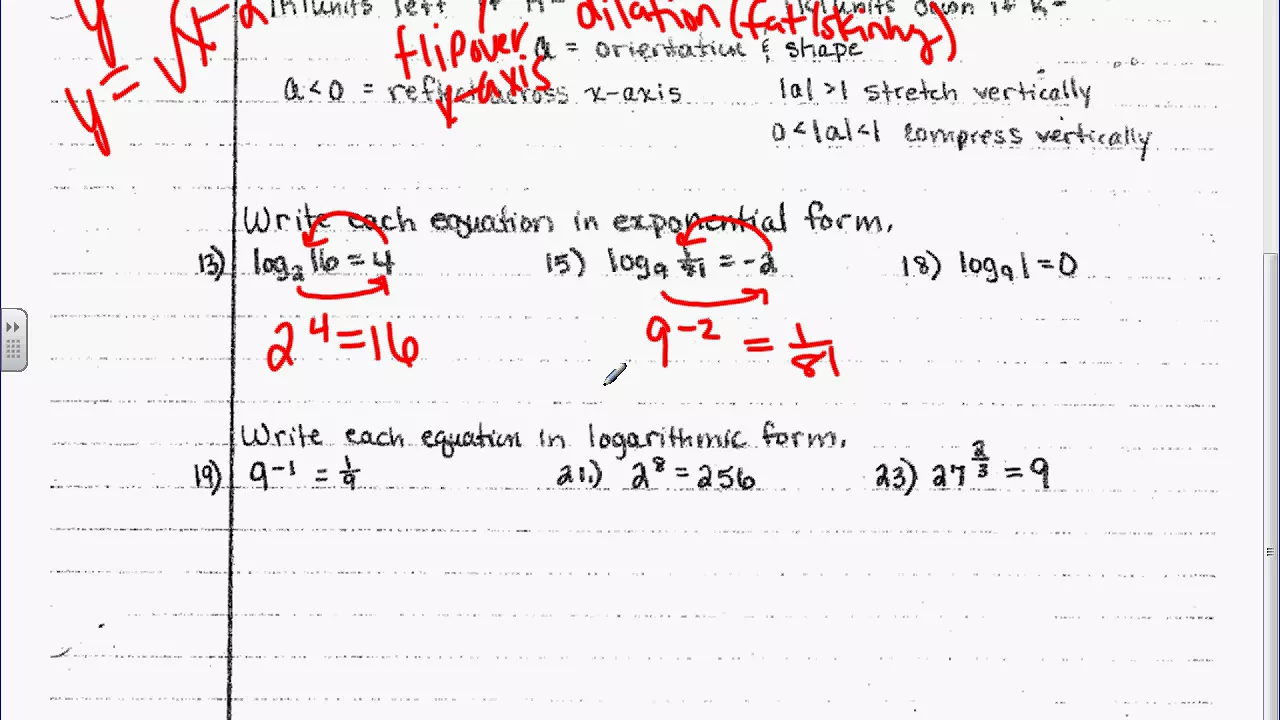 units left if
dilation (fat/skinny)
units down if k-
y = √x-2
flip over
x-axis
a = orientation & shape
a < 0 = reflect across x-axis
|a| > 1 stretch vertically
0 < |a| < 1 compress vertically
Write each equation in exponential form.
13) log₂ 16 = 4
15) log₉ 1/81 = -2
18) log₉ 1 = 0
2⁴ = 16
9⁻² = 1/81
Write each equation in logarithmic form.
19) 9⁻¹ = 1/9
21.) 2⁸ = 256
23) 27^(2/3) = 9